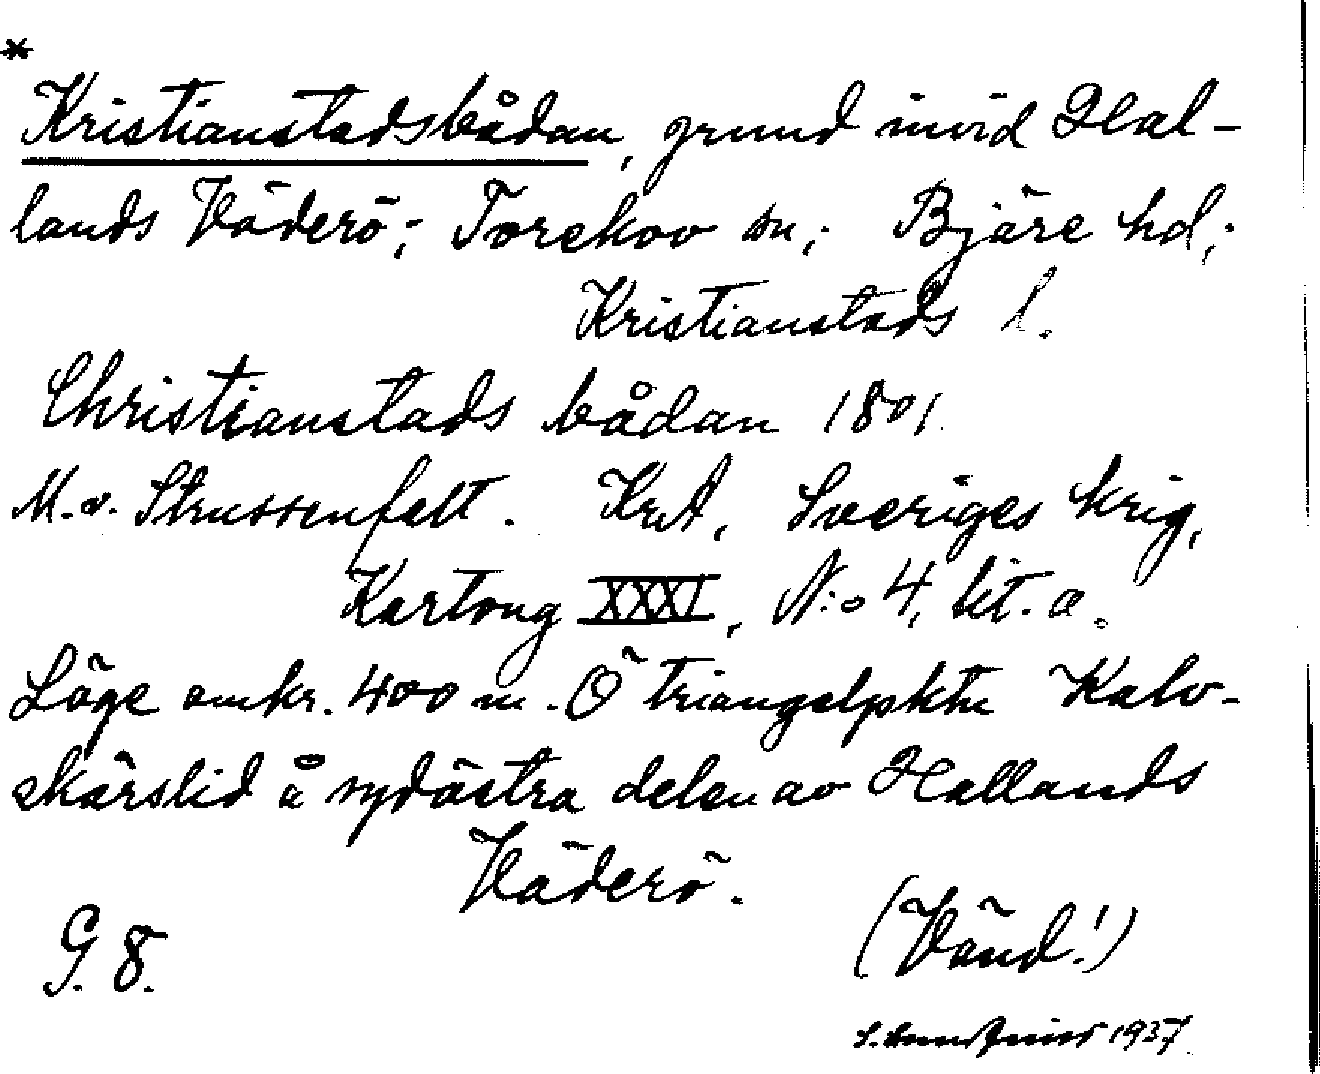 *
Kristianstadsbådan, grund invid Hal-
lands Väderö; Torekov sn; Bjäre hd;
Kristianstads l.
Christianstads bådan 1801.
M. v. Strussenfelt. KrA, Sveriges krig,
Kartong XXXI, N:o 4, lit. a.
Läge omkr. 400 m. Ö triangelpktn Kalv-
skärslid å sydöstra delen av Hallands
Väderö.
(Vänd!)
G. 8.
1937.